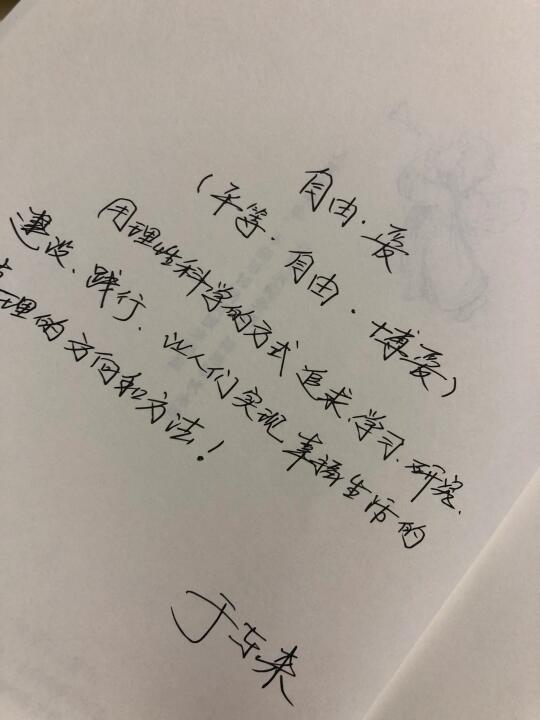 自由·爱
（平等·自由·博爱）
用理性科学的方式追求、学习、研究、
建设、践行、让人们实现幸福生活的
真理的方向和方法！
于东来